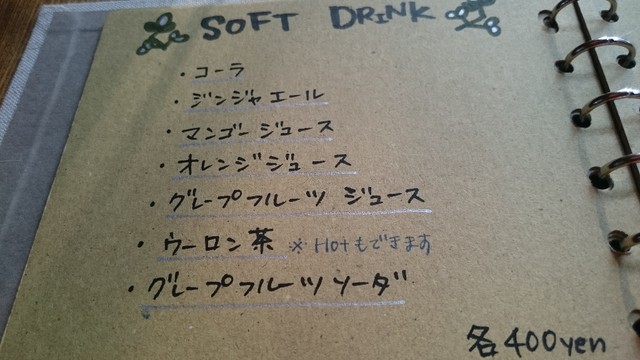 SOFT DRINK
・コーラ
・ジンジャエール
・マンゴージュース
・オレンジジュース
・グレープフルーツ ジュース
・ウーロン茶 ※Hotもできます
・グレープフルーツソーダ
各400yen